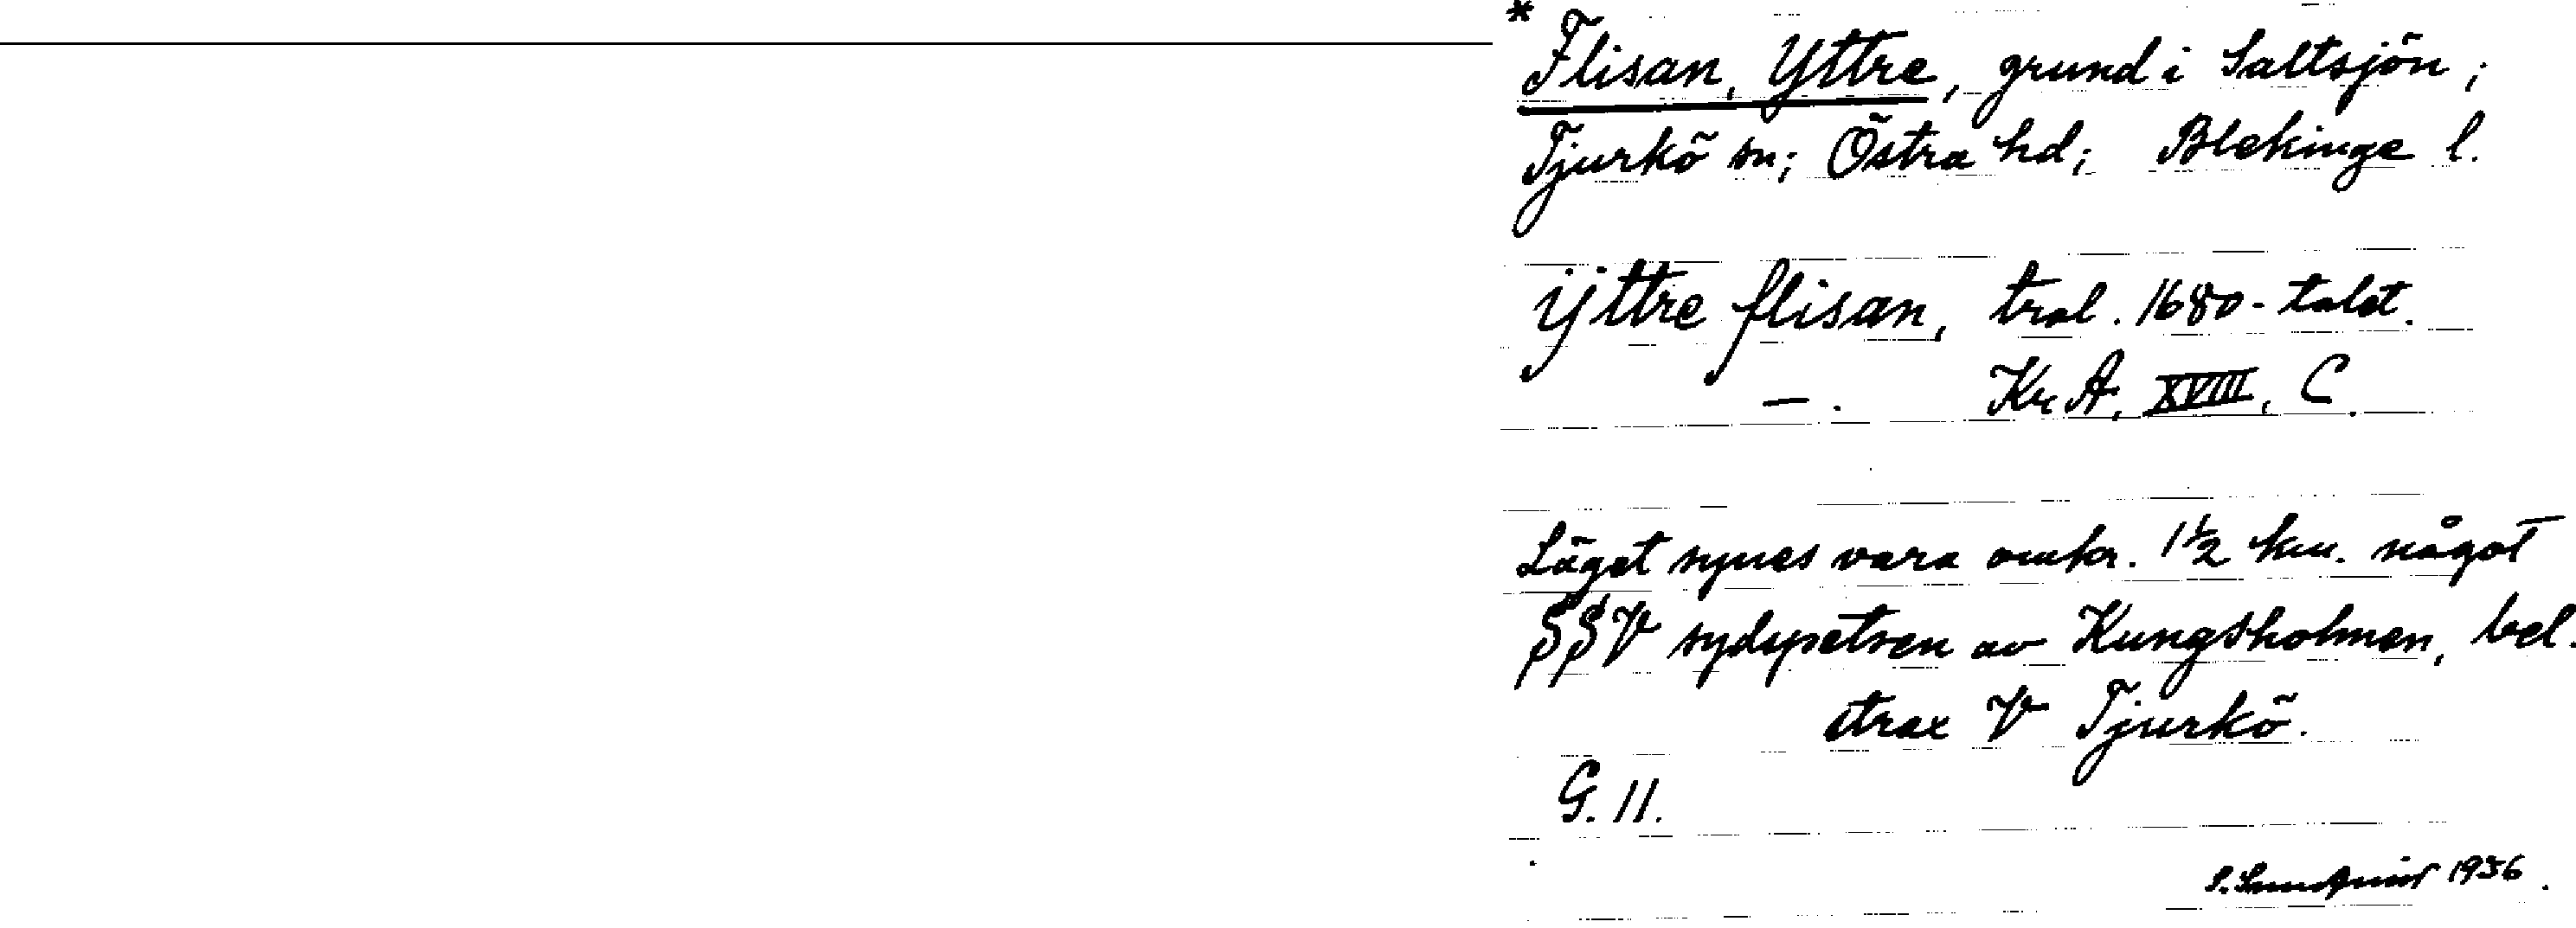 * Flisan, Yttre, grund i Saltsjön;
Tjurkö sn; Östra hd; Blekinge l.
ÿttre flisan, trol. 1680-talet.
—. Kr A, XVIII, C.
Läget synes vara omkr. 1½ km. något
SSV sydspetsen av Kungsholmen, bel.
strax V Tjurkö.
G. 11.
S. Sundquist 1956.